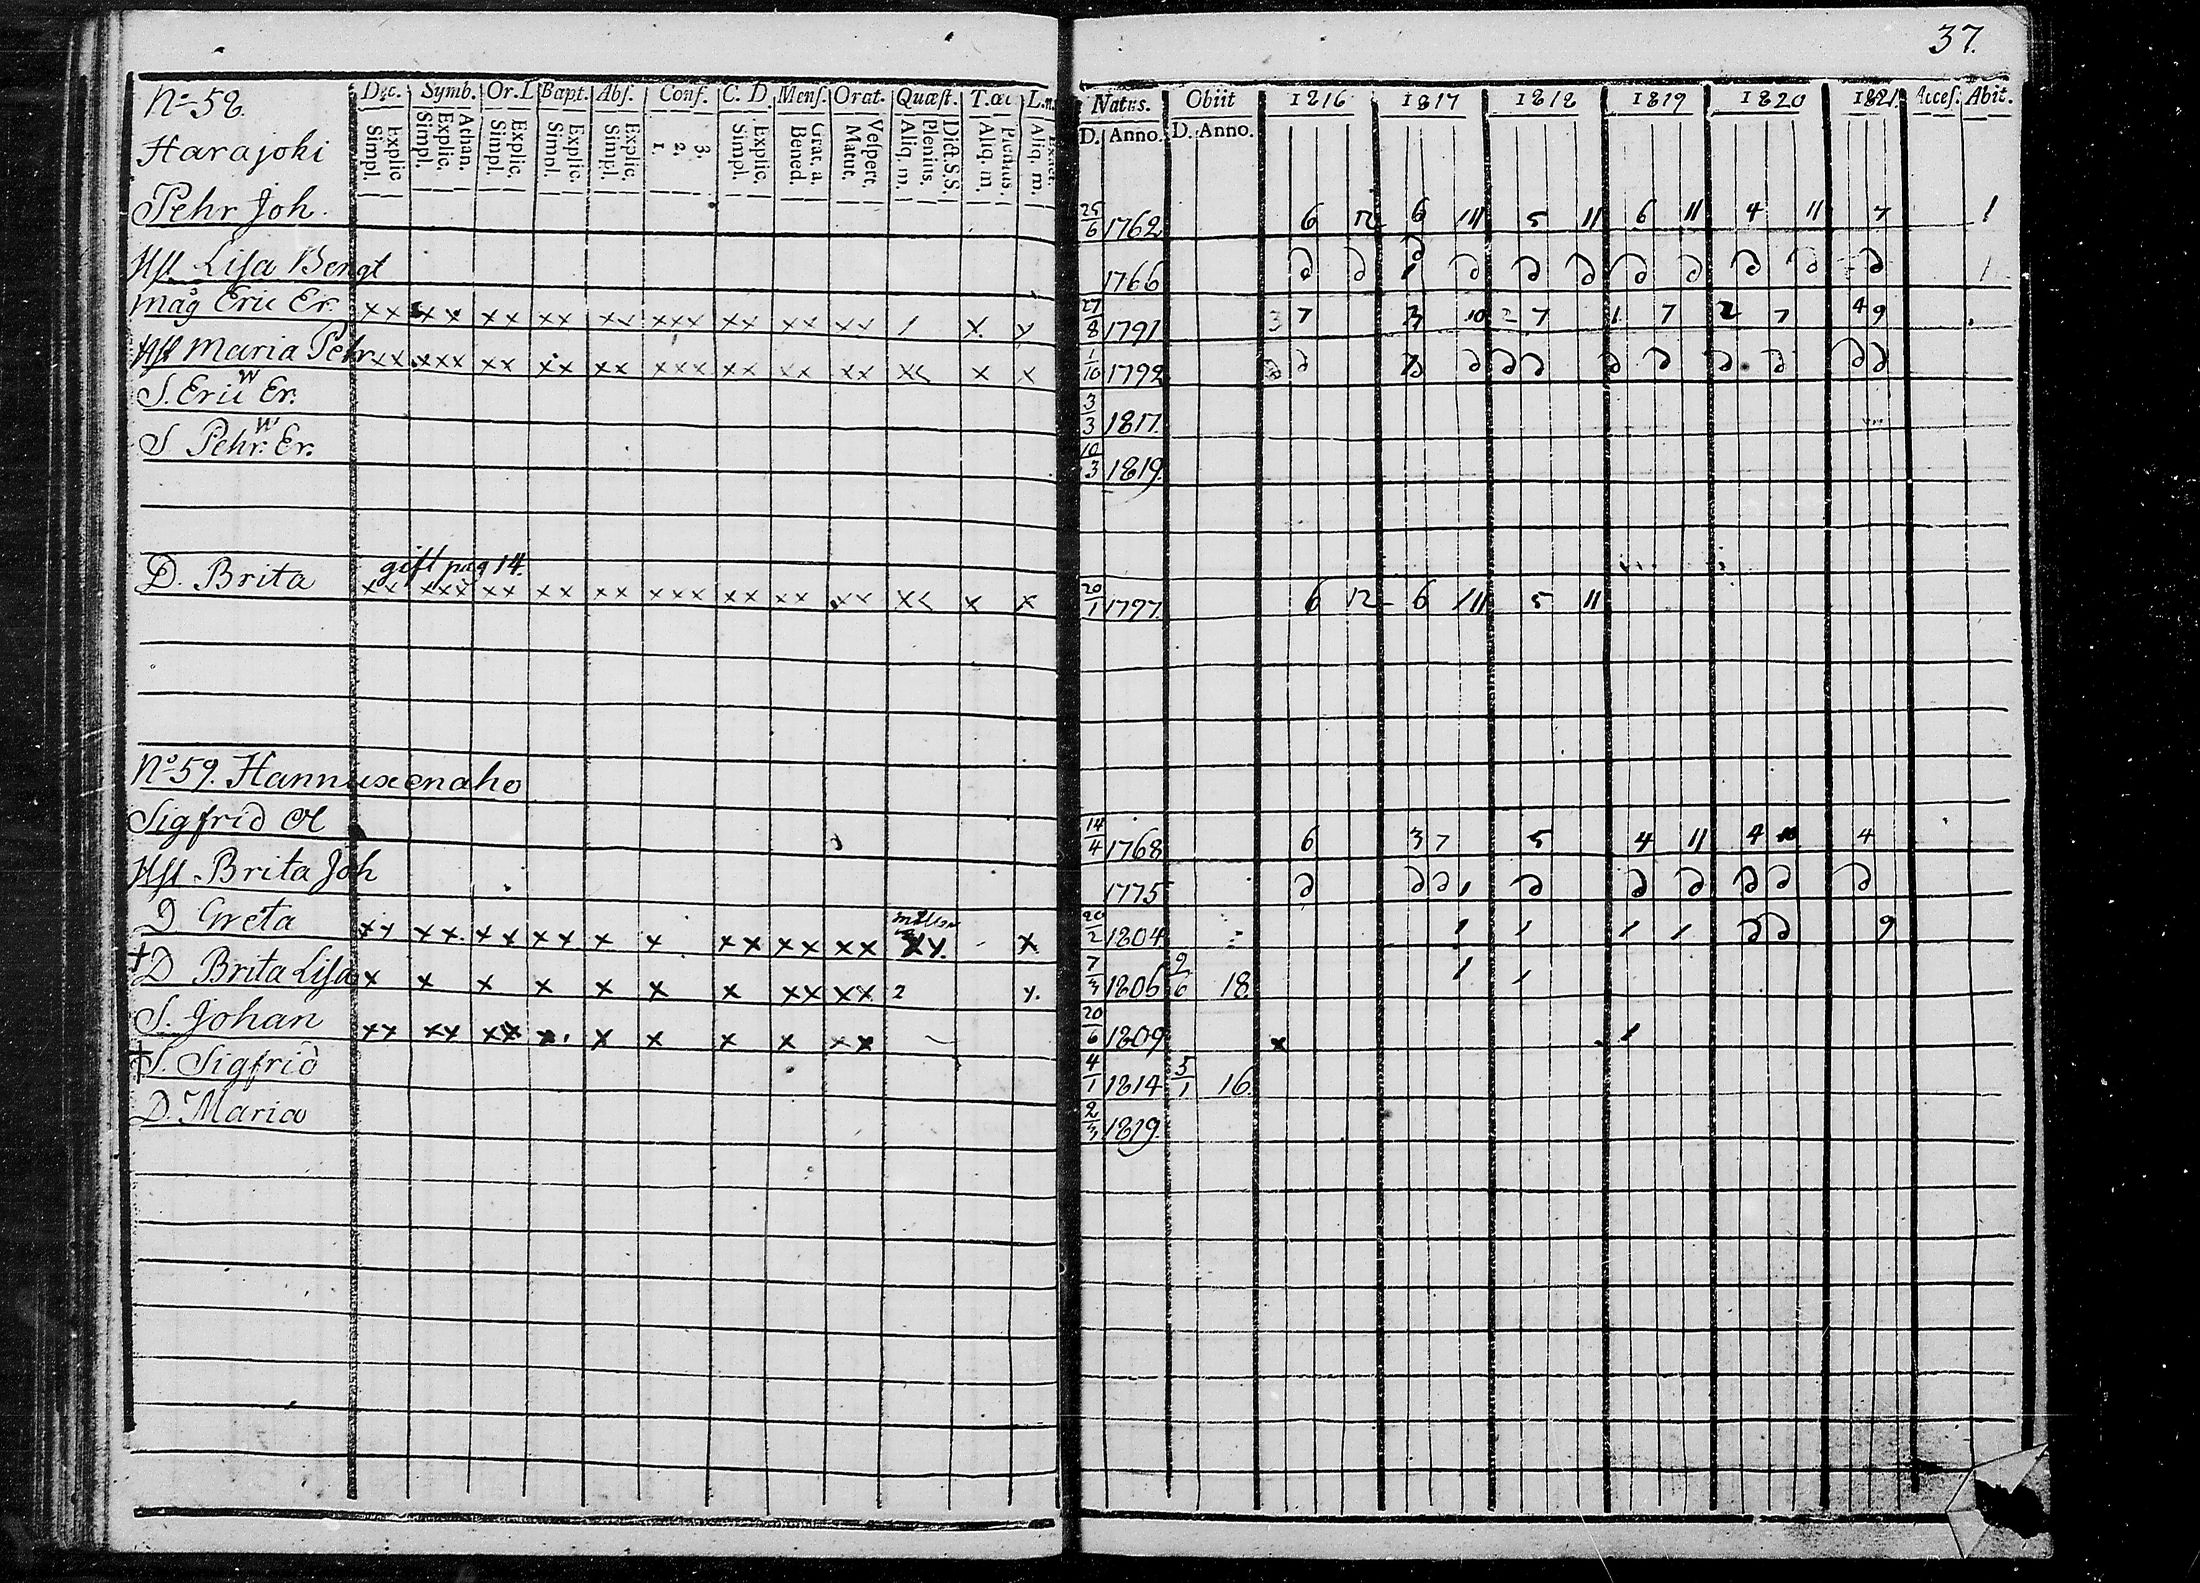 37.
Nº 58.
Harajoki
Dec. Symb. Or. D Bapt. Abs. Conf. C. D Mens. Orat. Quæst. T.œc L.n.
Explic. Simpl. Athan. Explic. Simpl. Explic. Simpl. Explic. Simpl. Explic. Simpl. 3. 2. 1. Explic. Simpl. Grat. a. Bened. Vespert. Matut. Dict.S.S. Plenius. Aliq. m. Plenius. Aliq. m. Aliq. m.
Natus. Obiit 1816 1817 1818 1819 1820 1821 Acces. Abit.
D. Anno. D. Anno.
Pehr Joh. 25/6 1762 6 12 6 111 5 11 6 11 4 11 7 1
Hst. Lisa Bengt 1766 1
Måg Eric Er. xx xx xx xx xx xxx xx xx xx 1 x x 27/8 1791 3 7 3 10 2 7 1 7 2 7 4 9
Hst Maria Pehr xx xxx xx xx xx xxx xx xx xx x x x 1/10 1792
S. Eric Er. w 3/3 1817.
S Pehr. Er. w 10/3 1819.
gift pag 14.
D. Brita xx xxx xx xx xx xxx xx xx xx x x x 20/1 1797. 6 12 6 111 5 11
Nº 59. Hannuxenaho
Sigfrid Ol 14/4 1768 6 3 7 5 4 11 4 10 4
Hst Brita Joh 1775
D Greta xx xx xx xx x x xx xx xx xx. - x 20/2 1804 1 1 1 1 9
† D Brita Lisa x x x x x x x xx xx 2 x. 7/3 1806 9/6 18. 1 1
S. Johan xx xx xx x. x x x x xx 20/6 1809 x 1
† S. Sigfrid 4/1 1814 5/1 16.
D. Maria 2/3 1819.